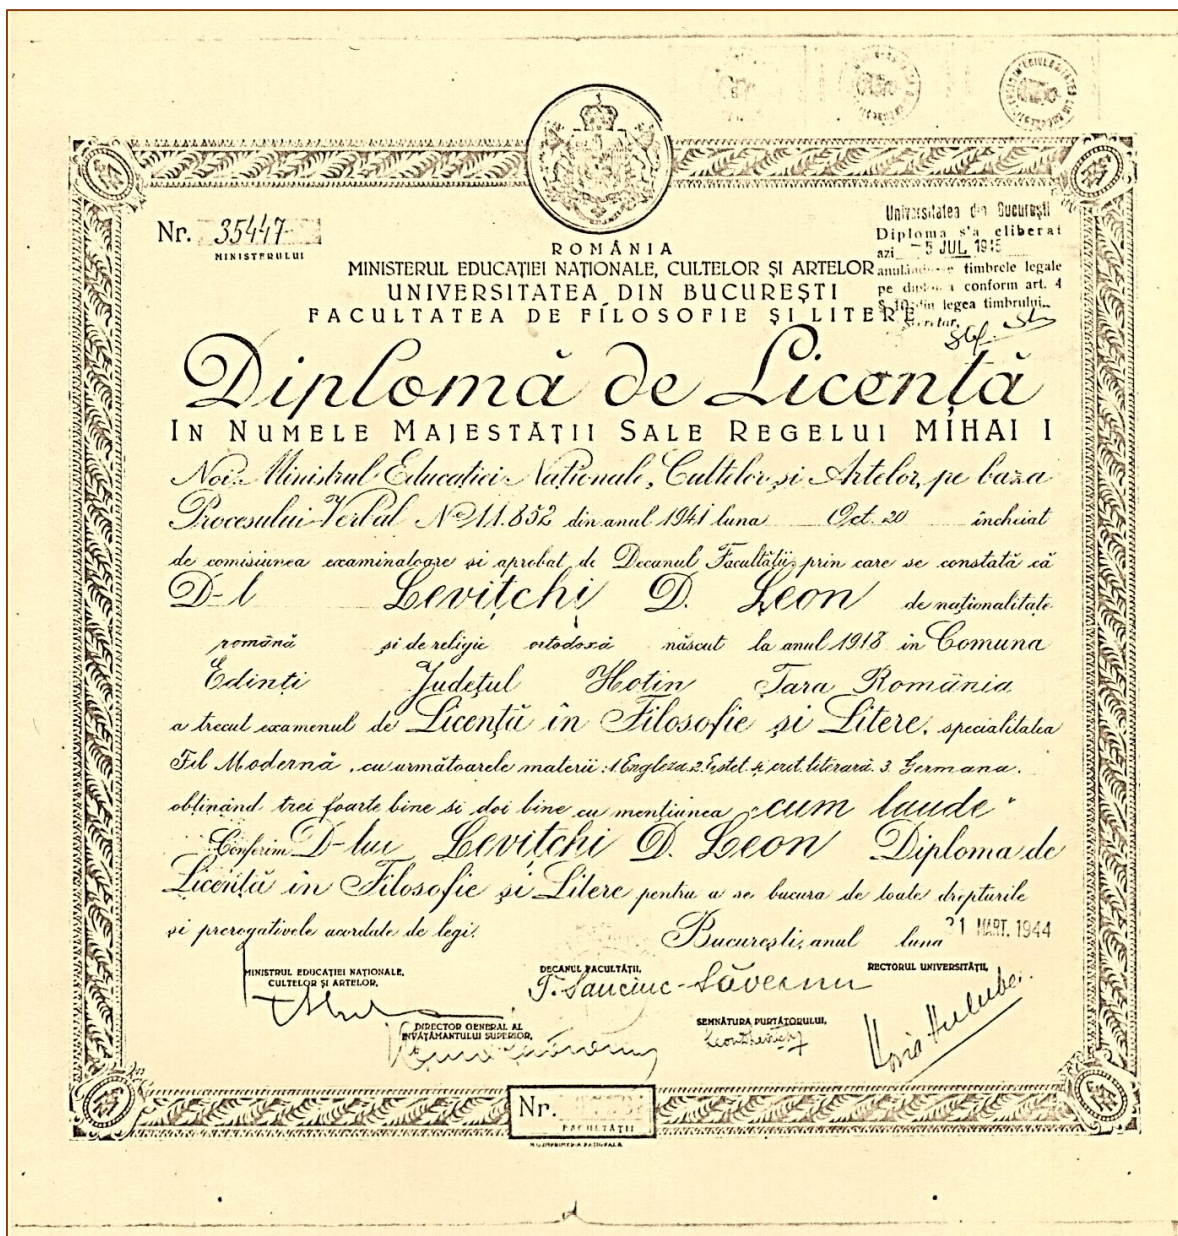 Nr. 35447
MINISTERULUI
Universitatea din București
Diploma s'a eliberat
azi - 5 JUL 1945
timbrele legale
pe conform art. 4
§ 10 din legea timbrului
Secretar,
ROMÂNIA
MINISTERUL EDUCAȚIEI NAȚIONALE, CULTELOR ȘI ARTELOR
UNIVERSITATEA DIN BUCUREȘTI
FACULTATEA DE FILOSOFIE ȘI LITERE
Diplomă de Licență
IN NUMELE MAJESTĂȚII SALE REGELUI MIHAI I
Noi Ministrul Educației Naționale, Cultelor și Artelor, pe baza
Procesului Verbal No 11.852 din anul 1941 luna Oct. 20 încheiat
de comisiunea examinatoare și aprobat de Decanul Facultății, prin care se constată că
D-l Levițchi D. Leon de naționalitate
română și de religie ortodoxă născut la anul 1918 in Comuna
Edinți Județul Hotin Țara România
a trecut examenul de Licență în Filosofie și Litere, specialitatea
Fil Modernă, cu următoarele materii: 1 Engleza 2. Estet. și crit. literară 3. Germana.
obținând trei foarte bine si doi bine cu mențiunea "cum laude"
Conferim D-lui Levitchi D. Leon Diploma de
Licență în Filosofie și Litere pentru a se bucura de toate drepturile
și prerogativele acordate de legi.
București, anul luna 31 MART. 1944
MINISTRUL EDUCAȚIEI NAȚIONALE,
CULTELOR ȘI ARTELOR,
DECANUL FACULTĂȚII,
T. Sauciuc-Săveanu
RECTORUL UNIVERSITĂȚII,
Horia Hulubei
DIRECTOR GENERAL AL
INVĂȚĂMANTULUI SUPERIOR,
SEMNĂTURA PURTĂTORULUI,
Leon Levițchi
Nr.
FACULTĂȚII